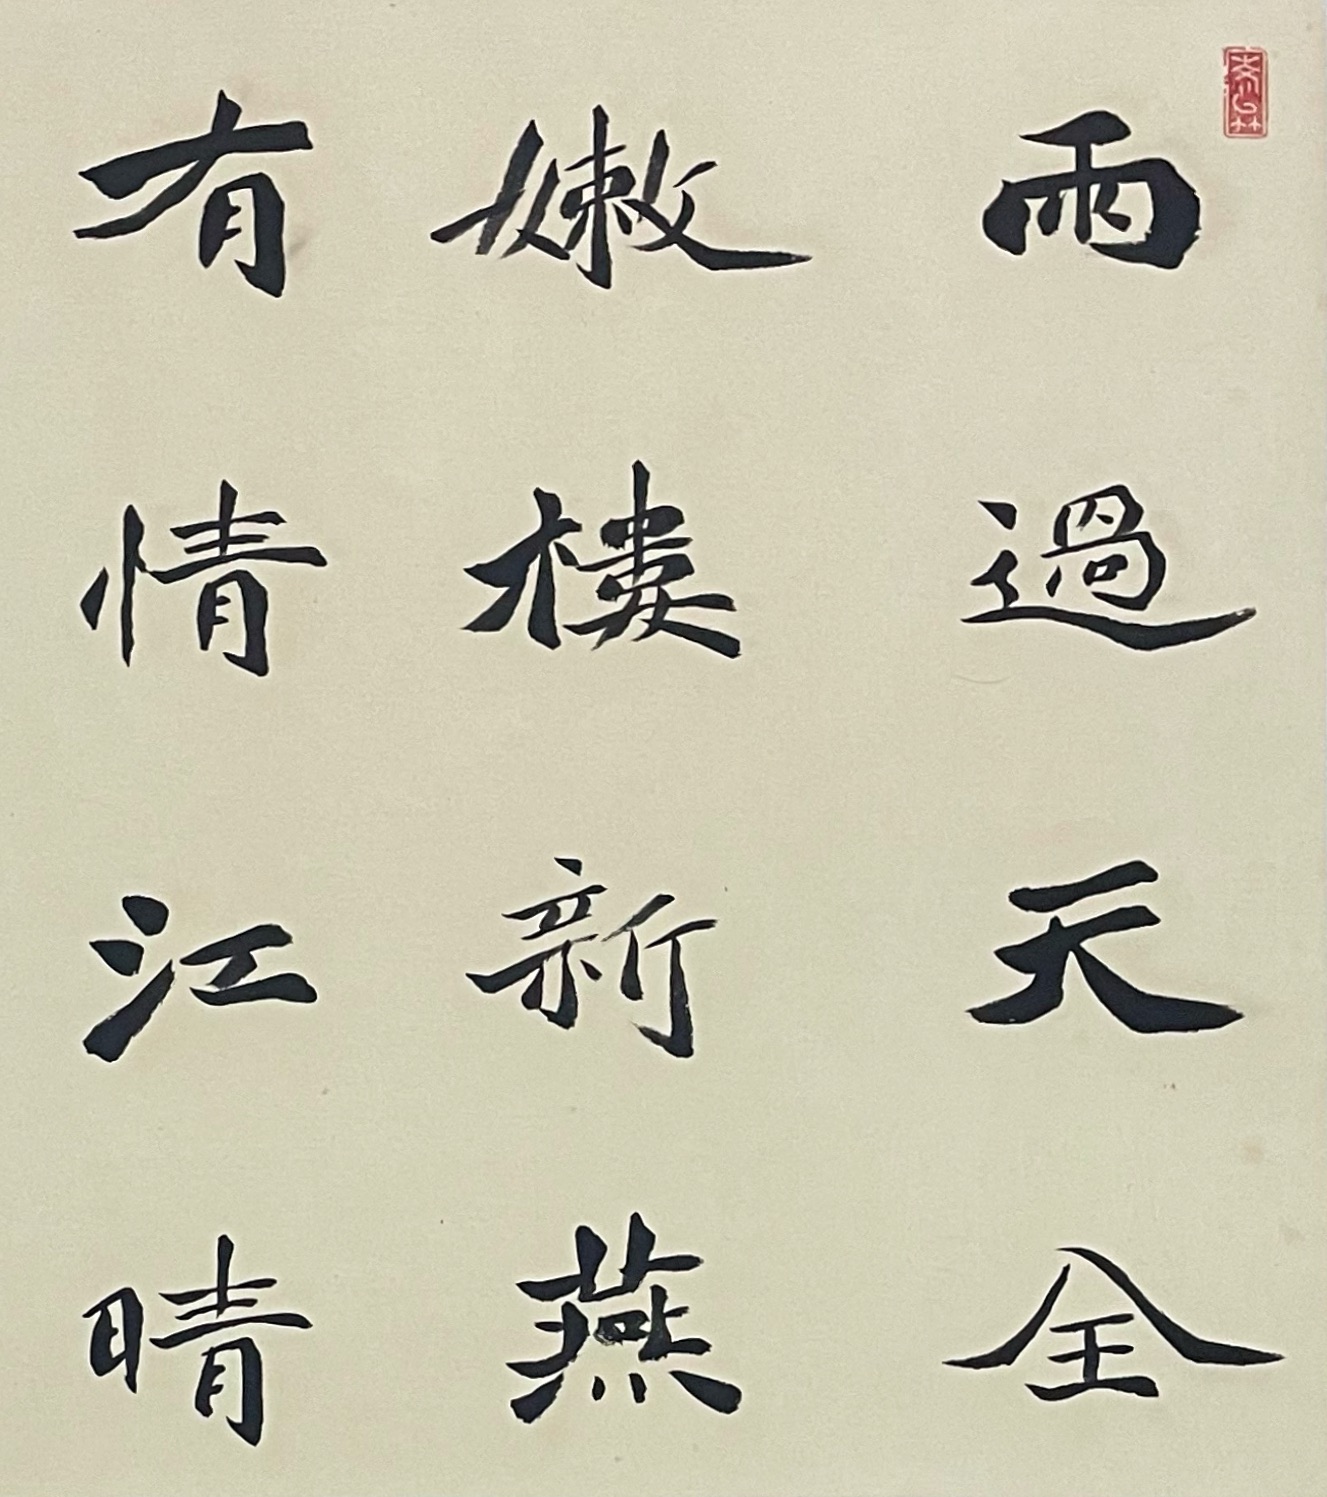 雨過天全
嫩樓新燕
有情江晴